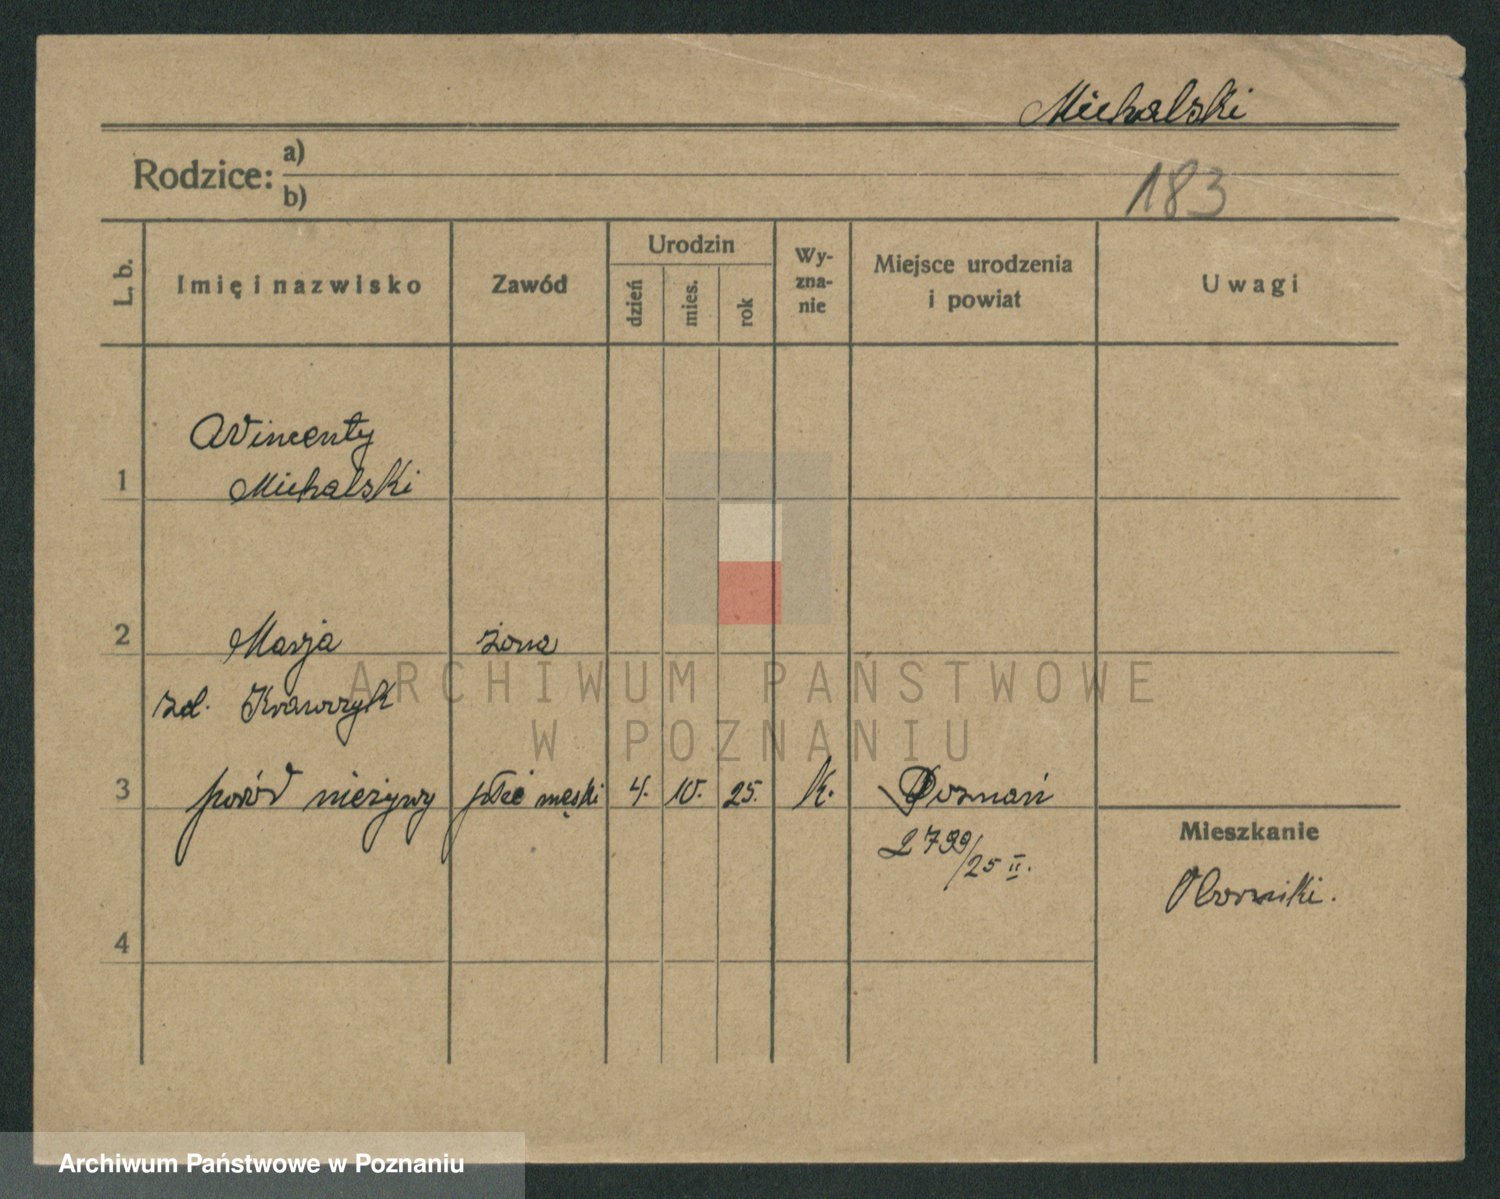 Michalski
Rodzice: a)
b)
183
L. b.
Imię i nazwisko
Zawód
Urodzin
dzień
mies.
rok
Wy-
zna-
nie
Miejsce urodzenia
i powiat
Uwagi
Wincenty
1 Michalski
2 Marja żona
zd. Krawczyk
3 poród nieżywy płeć męski 4. 10. 25. k. Poznań
2799/25 II.
Mieszkanie
Oborniki.
4
ARCHIWUM PAŃSTWOWE
W POZNANIU
Archiwum Państwowe w Poznaniu